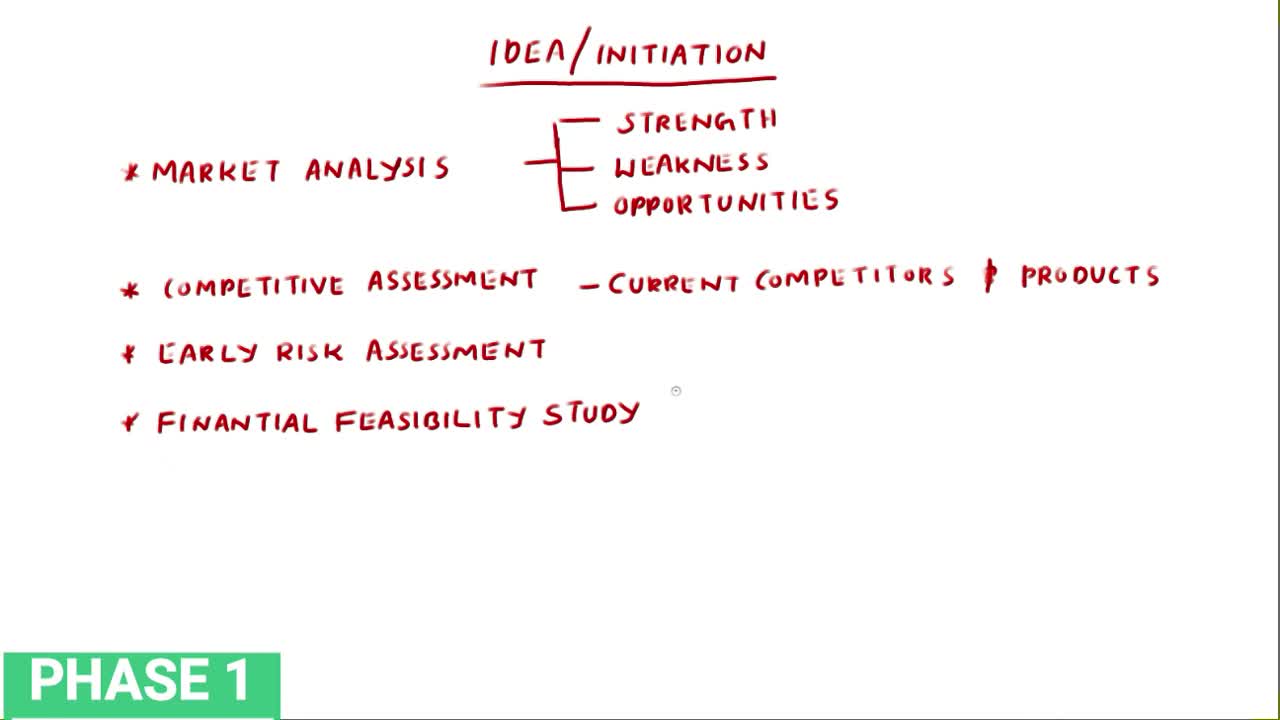 IDEA/INITIATION
* MARKET ANALYSIS
STRENGTH
WEAKNESS
OPPORTUNITIES
* COMPETITIVE ASSESSMENT - CURRENT COMPETITORS & PRODUCTS
* EARLY RISK ASSESSMENT
* FINANTIAL FEASIBILITY STUDY
PHASE 1